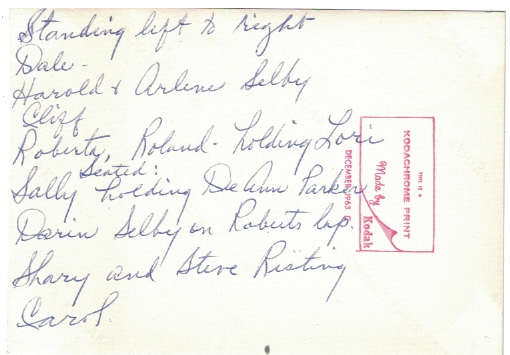 Standing left to right
Dale-
Harold + Arlene Selby
Cliff
Roberta, Roland- holding Lori
Seated:
Sally holding DeAnn Parker
Darin Selby on Roberts lap.
Shary and Steve Risting
Carol.
THIS IS A
KODACHROME PRINT
Made by Kodak
DECEMBER 1963